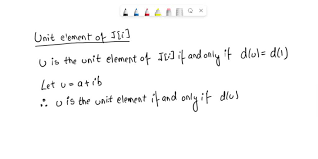 Unit element of J[i]
U is the unit element of J[i] if and only if d(u) = d(1)
Let u = a + ib
∴ u is the unit element if and only if d(u)